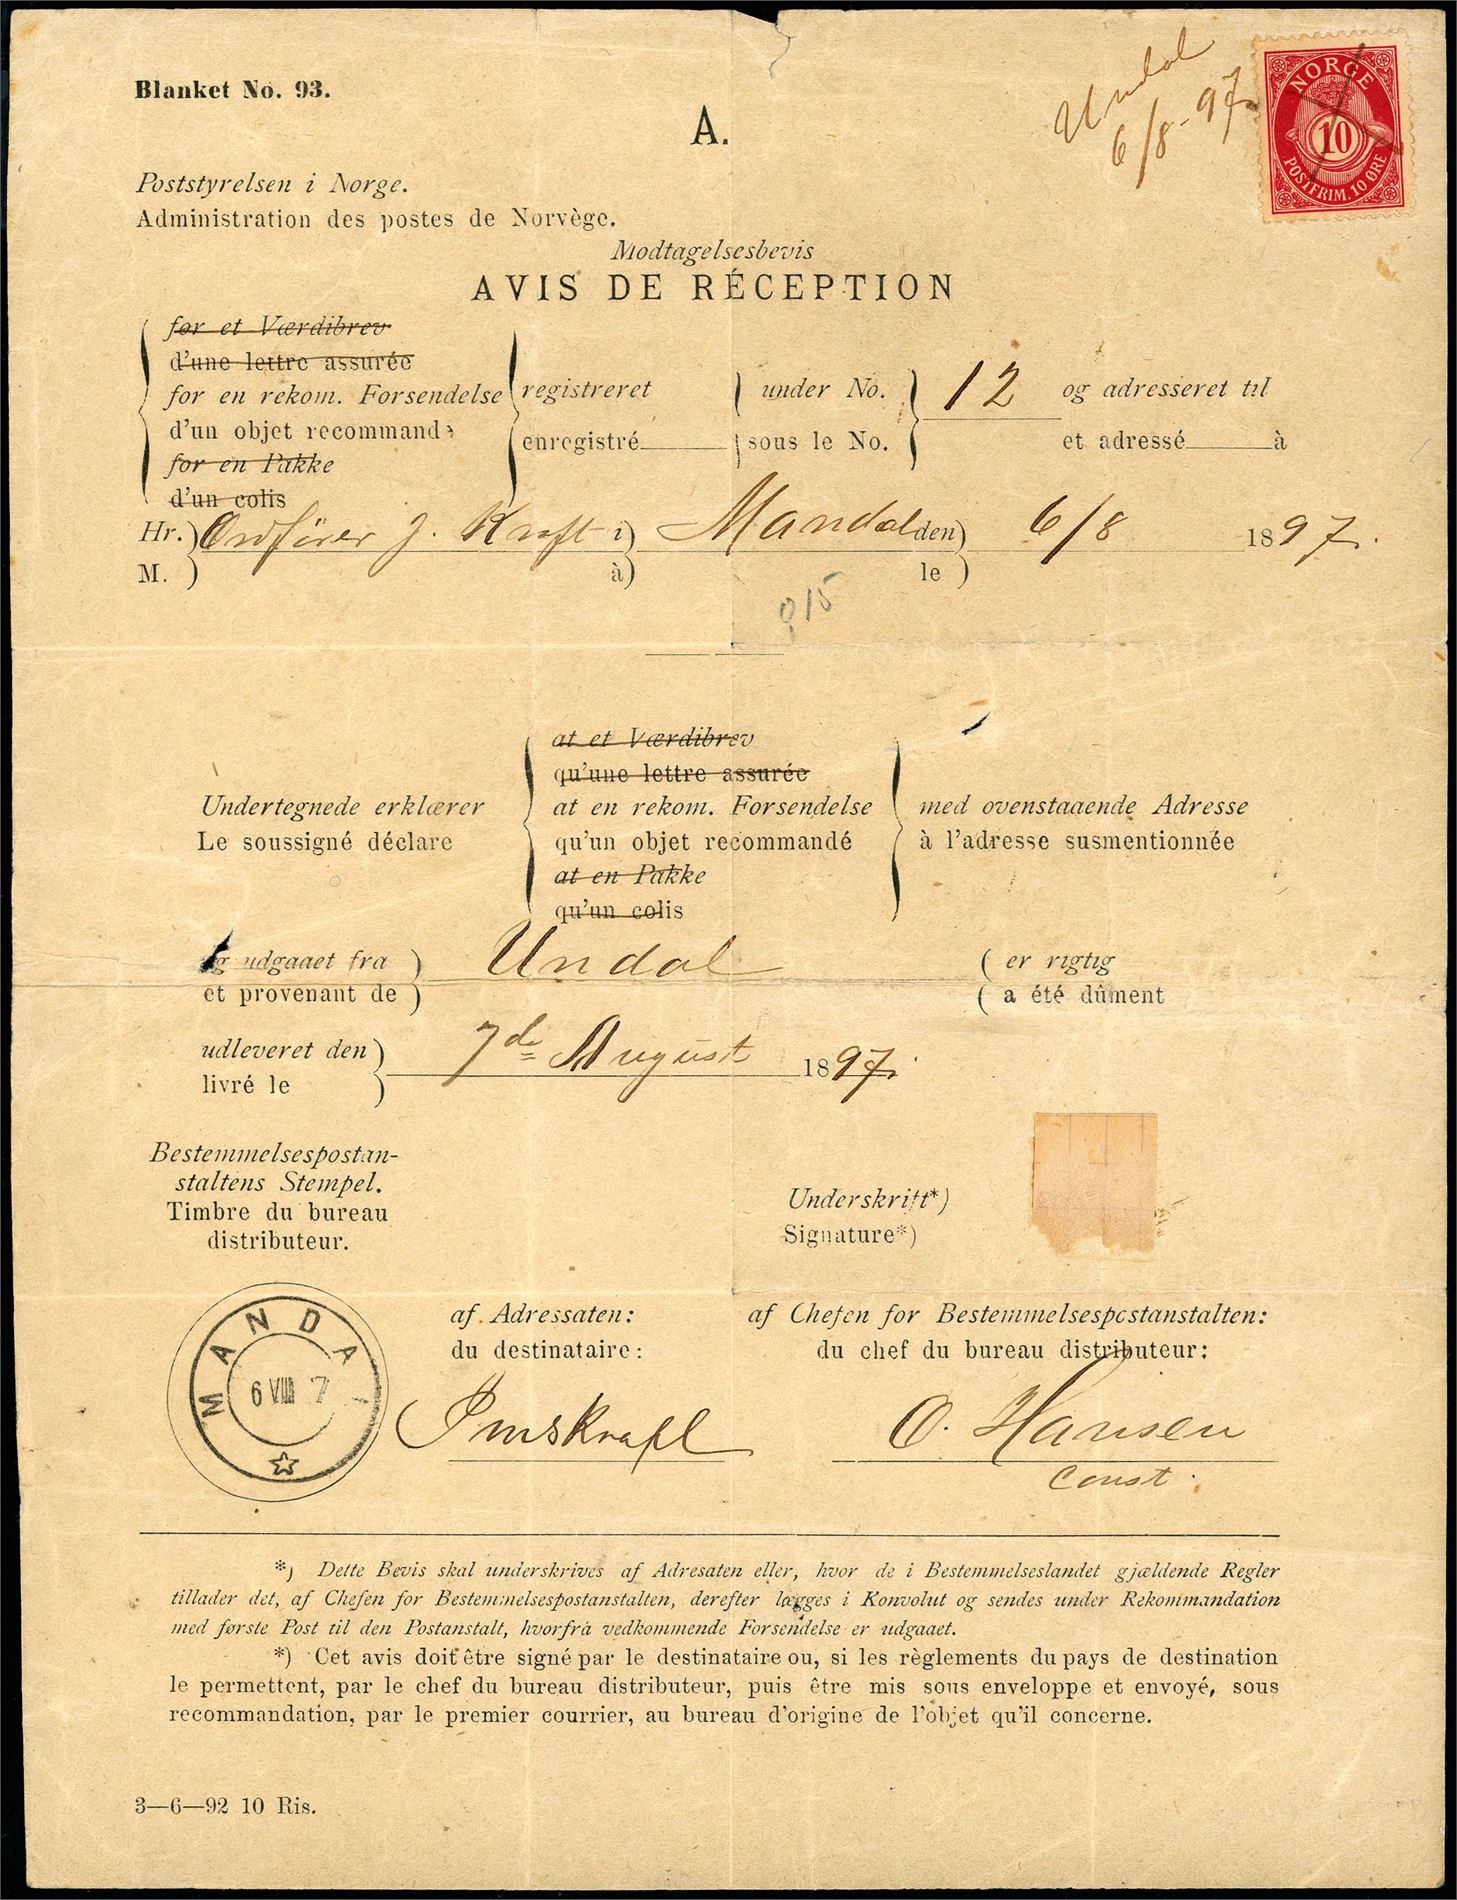 Blanket No. 93.
A.
Undal
6/8-97.
NORGE
10
POSTFRIM. 10 ØRE
Poststyrelsen i Norge.
Administration des postes de Norvège.
Modtagelsesbevis
AVIS DE RÉCEPTION
for et Værdibrev
d'une lettre assurée
for en rekom. Forsendelse registreret under No. 12 og adresseret til
d'un objet recommandé enregistré sous le No. et adressé à
for en Pakke
d'un colis
Hr. Ordfører J. Kraft i Mandal den 6/8 1897.
M. à le
015
at et Værdibrev
qu'une lettre assurée
Undertegnede erklærer at en rekom. Forsendelse med ovenstaaende Adresse
Le soussigné déclare qu'un objet recommandé à l'adresse susmentionnée
at en Pakke
qu'un colis
og udgaaet fra Undal er rigtig
et provenant de a été dûment
udleveret den 7de August 1897.
livré le
Bestemmelsespostan-
staltens Stempel.
Timbre du bureau
distributeur.
Underskrift*)
Signature*)
MANDAL
6 VIII 7
af Adressaten:
du destinataire:
af Chefen for Bestemmelsespostanstalten:
du chef du bureau distributeur:
O. Hansen
const.
*) Dette Bevis skal underskrives af Adresaten eller, hvor de i Bestemmelseslandet gjældende Regler
tillader det, af Chefen for Bestemmelsespostanstalten, derefter lægges i Konvolut og sendes under Rekommandation
med første Post til den Postanstalt, hvorfra vedkommende Forsendelse er udgaaet.
*) Cet avis doit être signé par le destinataire ou, si les règlements du pays de destination
le permettent, par le chef du bureau distributeur, puis être mis sous enveloppe et envoyé, sous
recommandation, par le premier courrier, au bureau d'origine de l'objet qu'il concerne.
3—6—92 10 Ris.